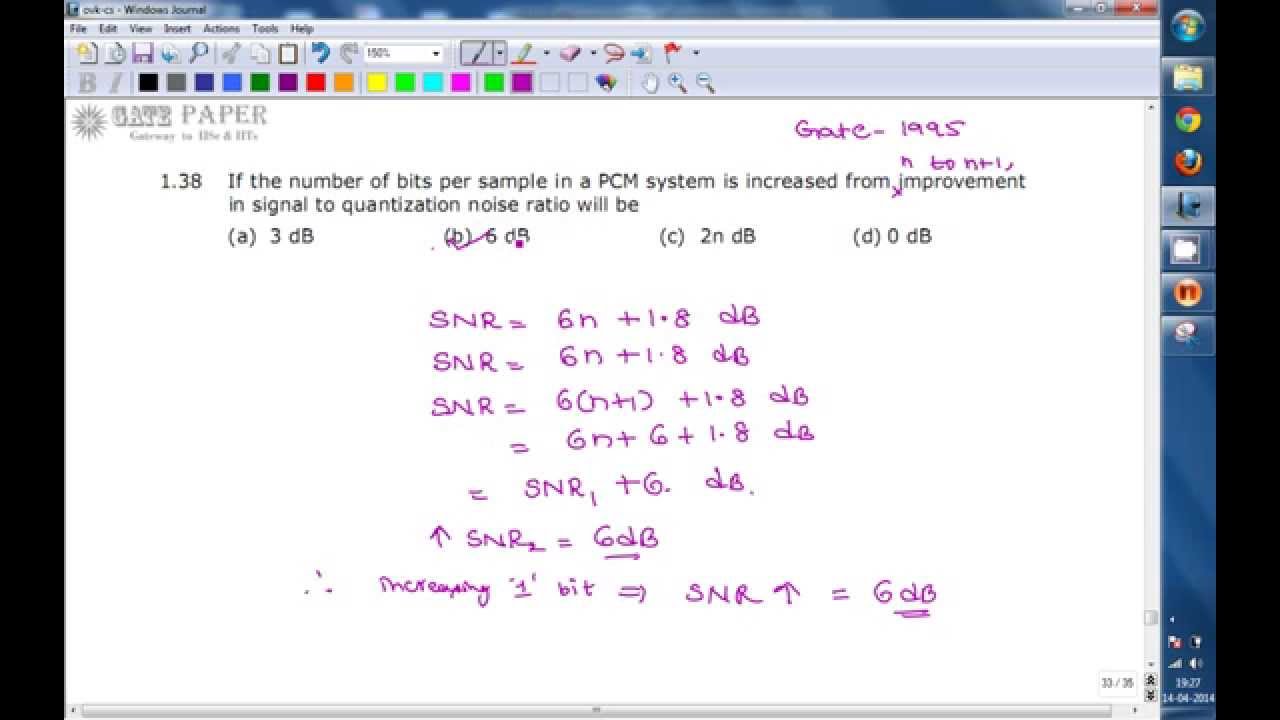 ovk-cs - Windows Journal
File Edit View Insert Actions Tools Help
150%
GATE PAPER
Gateway to IISc & IITs
Gate - 1995
n to n+1,
1.38 If the number of bits per sample in a PCM system is increased from improvement
in signal to quantization noise ratio will be
(a) 3 dB (b) 6 dB (c) 2n dB (d) 0 dB
SNR = 6n + 1.8 dB
SNR = 6n + 1.8 dB
SNR = 6(n+1) + 1.8 dB
= 6n + 6 + 1.8 dB
= SNR₁ + 6. dB.
↑ SNR₂ = 6dB
∴ increasing '1' bit ⇒ SNR ↑ = 6dB
33 / 35
19:27
14-04-2014